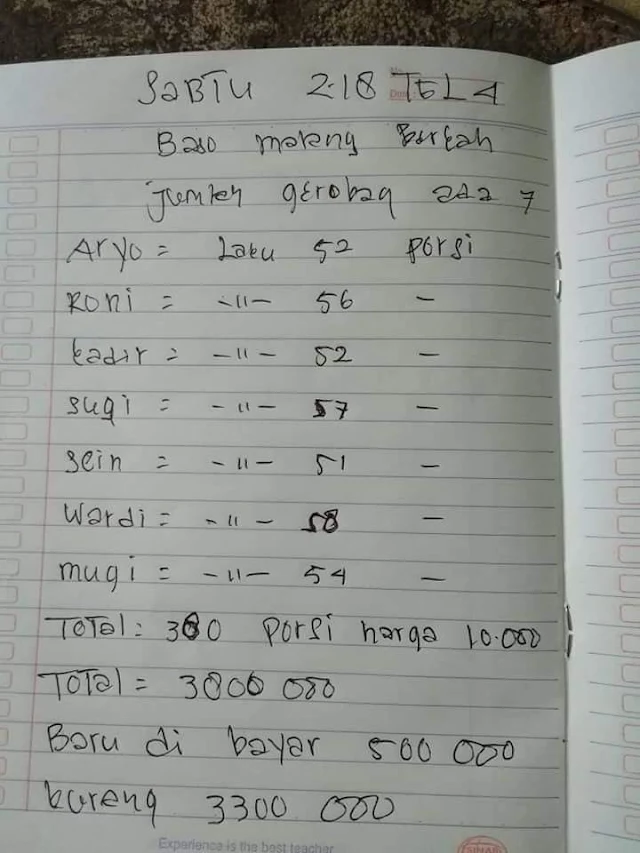 SABTU 2-18 TGL 4
Baso malang Berkah
Jumlah gerobag ada 7
Aryo = Laku 52 Porsi
Roni = -11- 56 -
kadir = -11- 52 -
sugi = -11- 57 -
sein = -11- 51 -
Wardi = -11- 58 -
mugi = -11- 54 -
TOTal: 380 Porsi harga 10.000
TOTal = 3800 000
Baru di bayar 500 000
kurang 3300 000
Experience is the best teacher